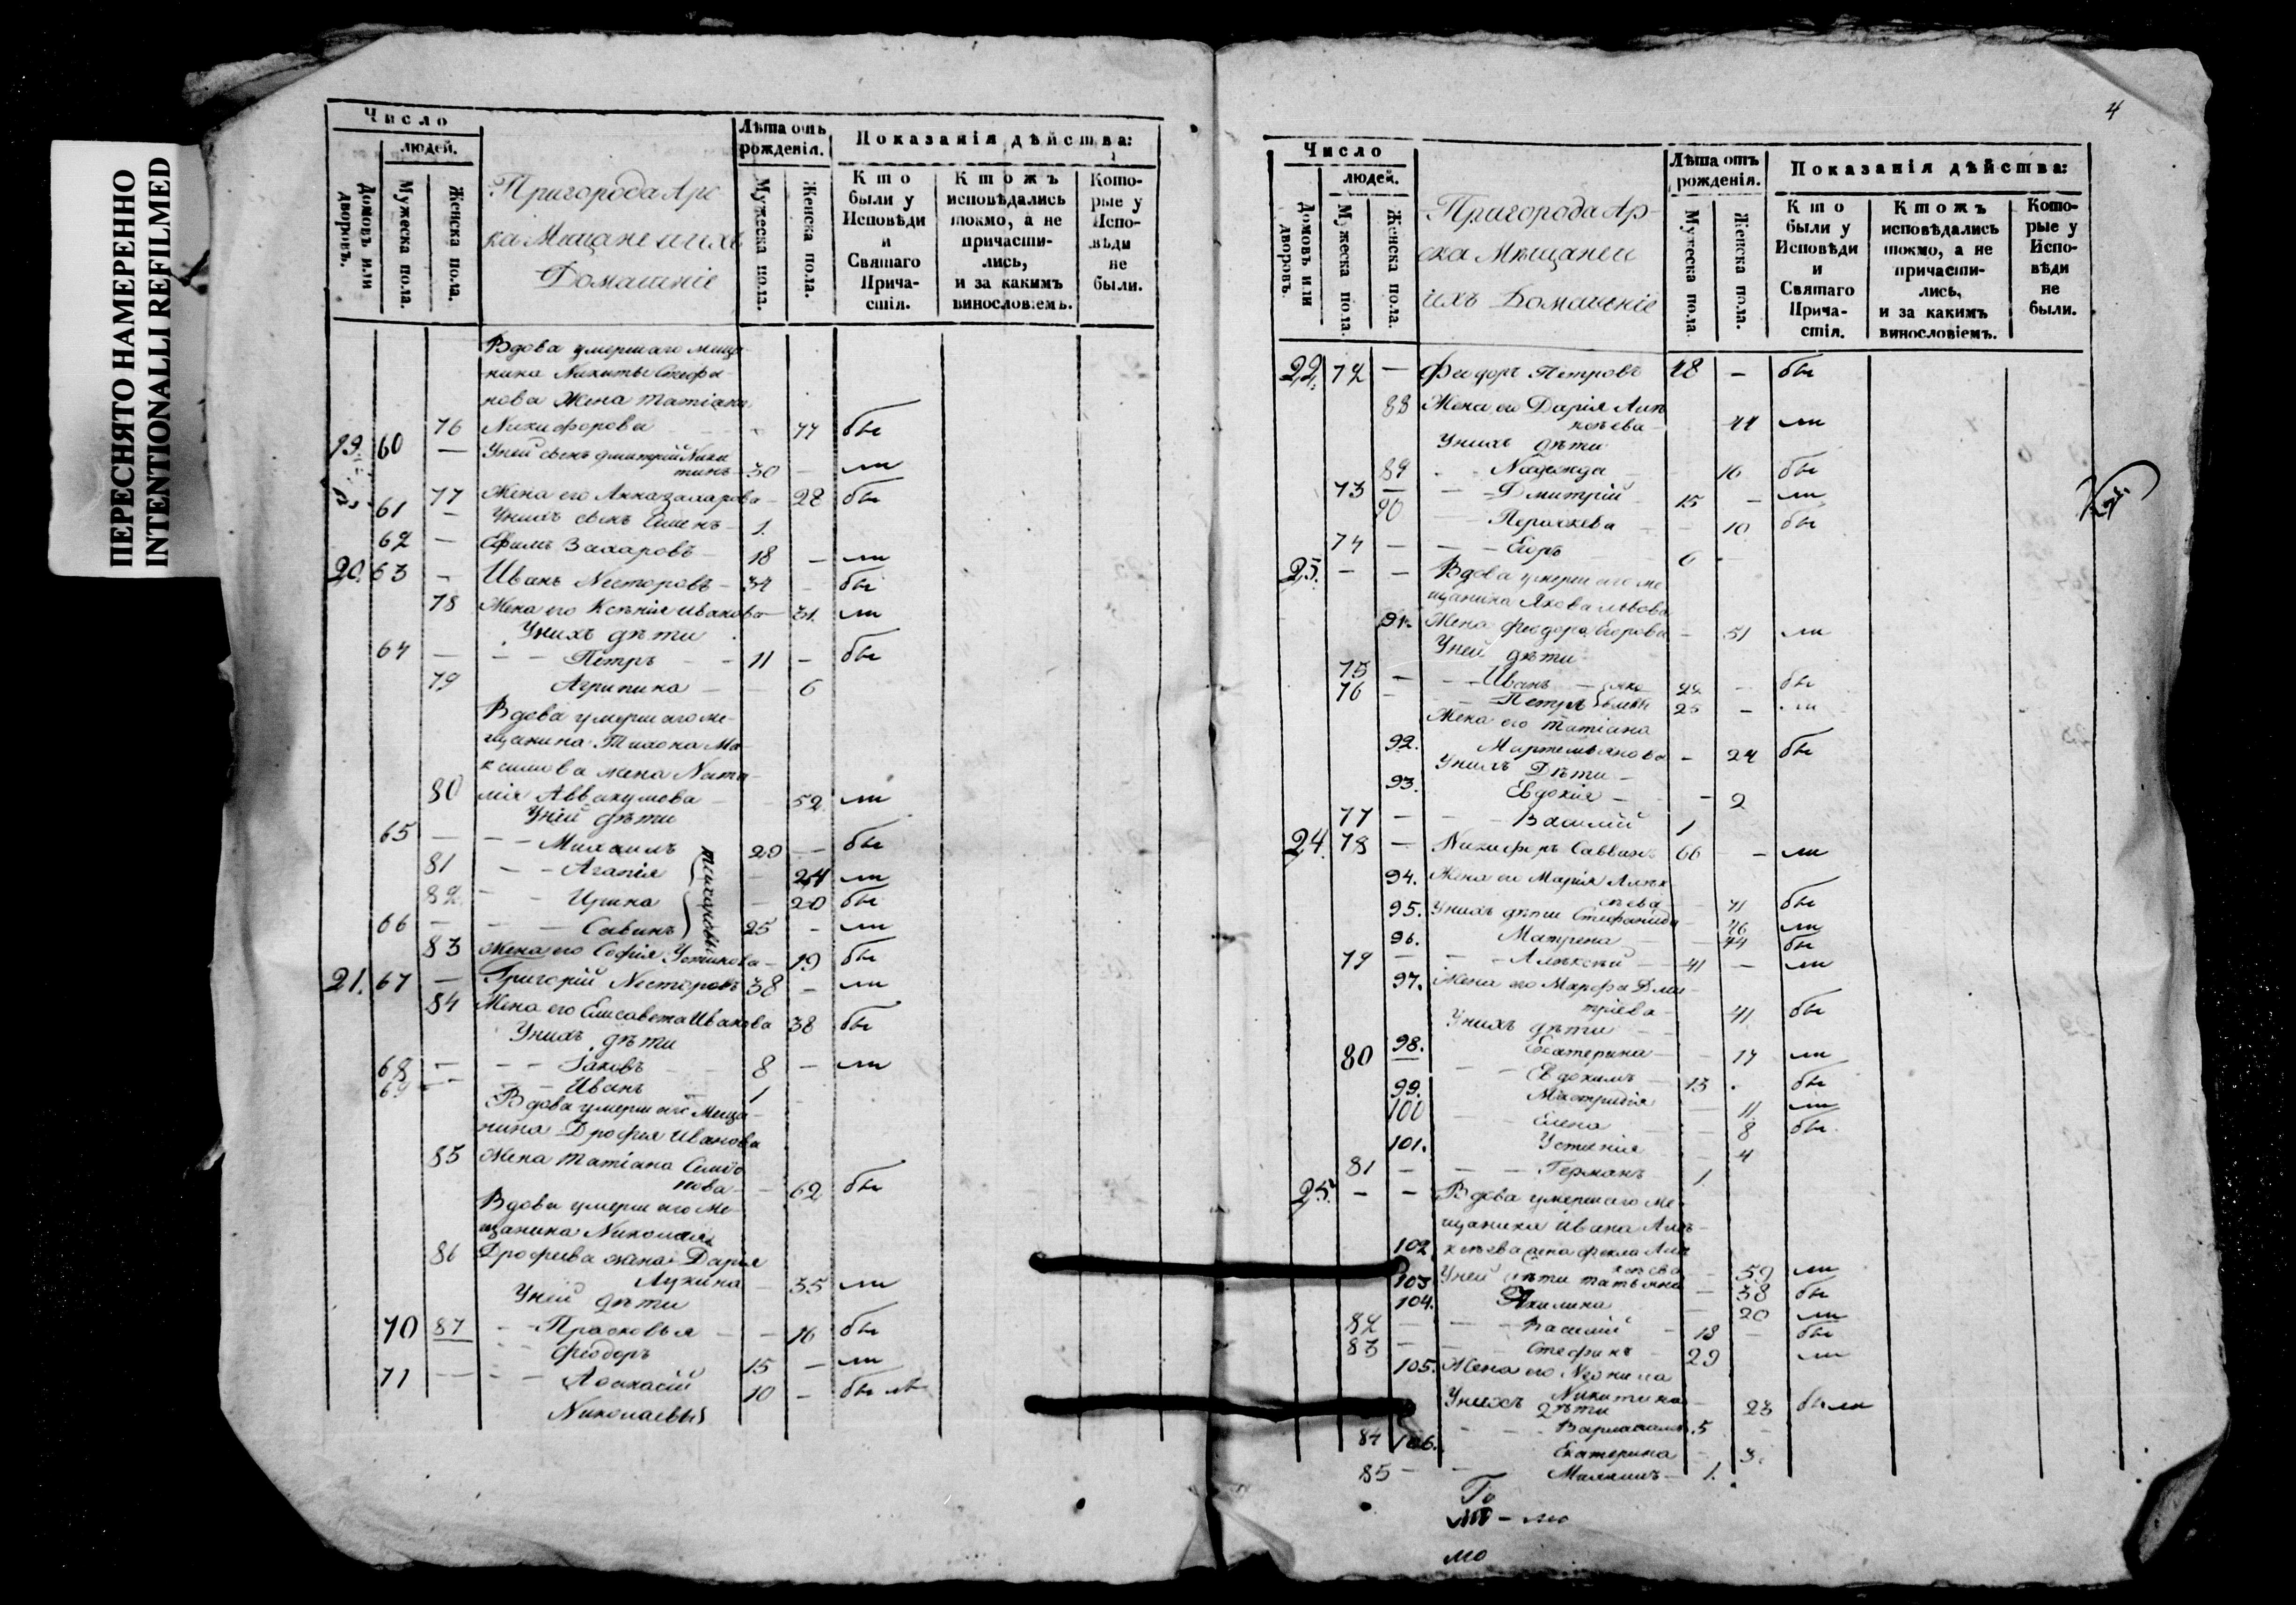 ПЕРЕСНЯТО НАМЕРЕННО
INTENTIONALLI REFILMED
Число
людей.
Домовъ или дворовъ.
Мужеска пола.
Женска пола.
Пригорода Арс
ка Мещане и ихъ
Домашніе
Лѣта отъ рожденія.
Мужеска пола.
Женска пола.
Показанія дѣйства:
Кто были у Исповѣди и Святаго Прича-стія.
Ктожъ исповѣдались токмо, а не причасти-лись, и за какимъ винословіемъ.
Кото-рые у Испо-вѣди не были.
Вдова умершаго меща
нина Никиты Стефа
нова жена Татіана
76 Никифорова 77 бы
19. 60 — Уней сынъ Дмитрій Ники
тинъ 30 — ли
77 Жена его Анна Захарова 28 бы
61 — Унихъ сынъ 1.
62 — Ефимъ Захаровъ 18 — ли
20. 63 — Иванъ Несторовъ 34 — бы
78 Жена его Ксенія Иванова 31. ли
Унихъ дѣти
64 — Петръ 11 — бы
79 Агрипина 6
Вдова умершаго ме-
щанина Тихона Ма-
ксимова жена Ната
80 лія Аввакумова 52 ли
Уней дѣти
65 — Михаилъ 29 — бы
81 Агапія 24 ли
82 Ирина 20 бы
66 — Савинъ 25 — ли
Тихоновы
83 Жена его Софія Устинова 19 бы
21. 67 — Григорій Несторовъ 38 — ли
84 Жена его Елисавета Иванова 38 бы
Унихъ дѣти
68 — Іаковъ 8 — ли
69 — Иванъ 1
Вдова умершаго Меща
нина Дрофея Иванова
85 Жена Татіана Семіо
нова 62 бы
Вдова умершаго ме-
щанина Николая
86 Дрофеева жена Дарія
Лукина 35 ли
Уней дѣти
70 87 Прасковья 16 бы
Феодоръ 15 — ли
71 — Афанасій 10 — бы ли
Николаевы
4
Число
людей.
Домовъ или дворовъ.
Мужеска пола.
Женска пола.
Пригорода Ар-
ска Мѣщане и
ихъ Домашніе
Лѣта отъ рожденія.
Мужеска пола
Женска пола.
Показанія дѣйства:
Кто были у Исповѣди и Святаго Прича-стія.
Ктожъ исповѣдались токмо, а не причасти-лись, и за какимъ винословіемъ.
Кото-рые у Испо-вѣди не были.
22. 72 — Феодоръ Петровъ 48 — бы
88 Жена его Дарія Алек
сѣева 44 ли
Унихъ дѣти
89 Надежда 16 бы
73 — Дмитрій 15 — ли
90 10 бы
74 — Егоръ 6
23. — — Вдова умершаго ме
щанина Якова Львова
91. Жена Феодора Егорова 51 ли
Уней дѣти
75 — Иванъ 22 — бы
76 — Петръ 25 — ли
Жена его Татіана
92. Мартемьянова 24 бы
Унихъ Дѣти
93. Евдокія 2
77 — Василій 1
24. 78 — Никифоръ Саввинъ 66 — ли
94. Жена его Марія Алек
сѣева 71 бы
95. Унихъ дѣти Стефанида 46 ли
96. Матрена 44 бы
79 — Алексѣй 41 — ли
97. Жена его Марфа Дми
тріева 41 бы
Унихъ дѣти
98. Екатерина 17 ли
80 — Евдокимъ 13 . бы
99. 11 ли
100 Елена 8 бы
101. Устинія 4
81 — Германъ 1
25. — — Вдова умершаго ме
щанина Ивана Але
102 ксѣева жена Фекла Але
ксѣева 59 ли
103 Уней дѣти Татьяна 38 бы
104. Акилина 20 ли
82 — Василій 18 — бы
83 — Стефанъ 29 ли
105. Жена его Неонила
Никитина 23 были
Унихъ дѣти
84 5
106. Екатерина 3.
85 — 1.
Го
мо